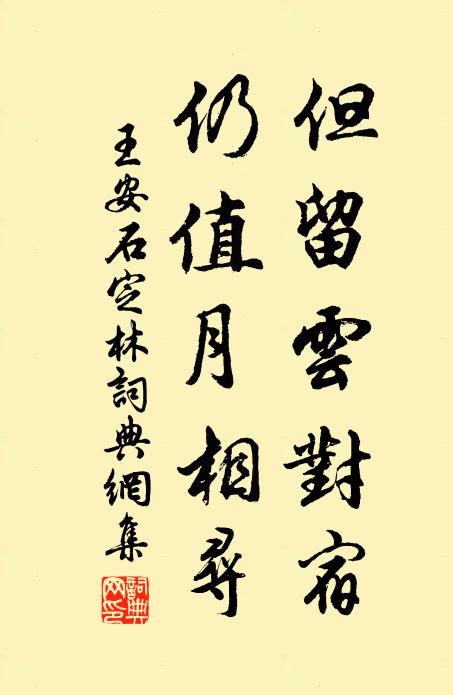 但留雲對宿
仍值月相尋
王安石定林詞典網集
詞典網印